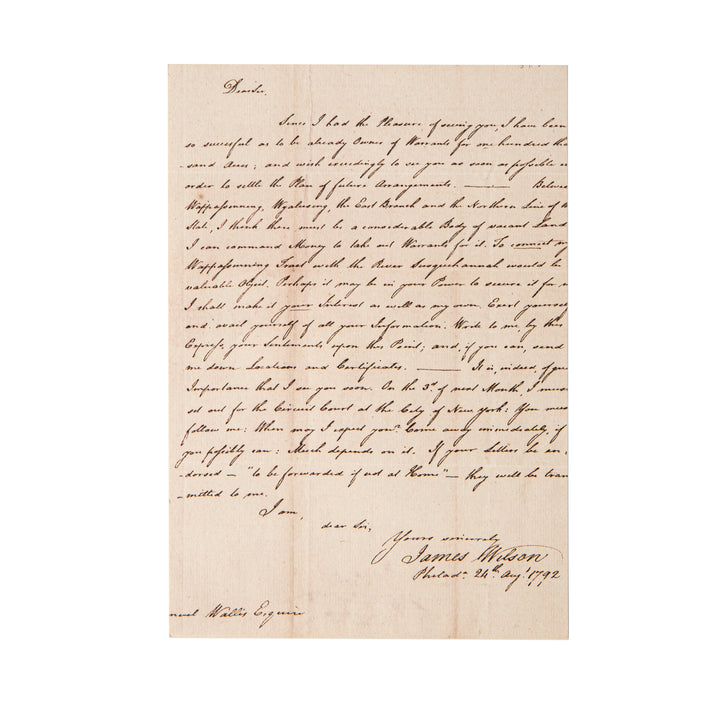 Dear Sir,
Since I had the Pleasure of seeing you, I have been
so succesful as to be already Owner of Warrants for one hundred tho
-sand Acres; and wish exceedingly to see you as soon as possible
order to settle the Plan of future Arrangements. —— Betwe
Wappasunning, Wyalusing, the East Branch and the Northern Line of
State, I think there must be a considerable Body of vacant Land
I can command Money to take out Warrants for it. To connect my
Wappasunning Tract with the River Susquehannah would be
valuable Object. Perhaps it may be in your Power to secure it for
I shall make it your Interest as well as my own. Exert yourself
and avail yourself of all your Information. Write to me, by this
Express, your Sentiments upon this Point; and, if you can, send
me down Locations and Certificates. —— It is, indeed, of
Importance that I see you soon. On the 3d of next Month, I must
set out for the Circuit Court at the City of New York: You must
follow me: When may I expect you? Come away immediately, if
you possibly can: Much depends on it. If your Letters be en
-dorsed — "to be forwarded if not at Home" — they will be tran
-mitted to me.
I am,
dear Sir,
Yours sincerely
James Wilson
Philada 24th Augt 1792
muel Wallis Esquire